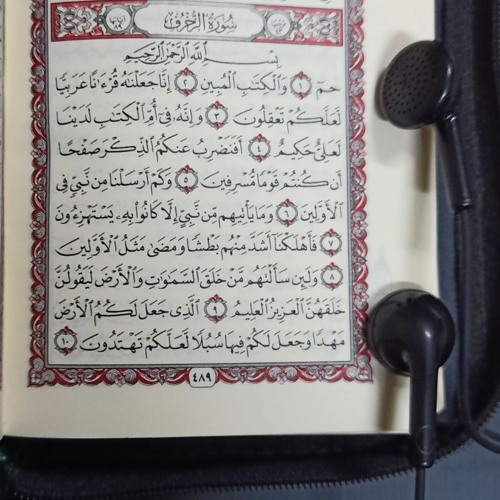 سُورَةُ الزُّخْرُفِ
بِسْمِ اللَّهِ الرَّحْمَٰنِ الرَّحِيمِ
حمٓ ١ وَٱلْكِتَٰبِ ٱلْمُبِينِ ٢ إِنَّا جَعَلْنَٰهُ قُرْءَٰنًا عَرَبِيًّا
لَّعَلَّكُمْ تَعْقِلُونَ ٣ وَإِنَّهُۥ فِىٓ أُمِّ ٱلْكِتَٰبِ لَدَيْنَا
لَعَلِىٌّ حَكِيمٌ ٤ أَفَنَضْرِبُ عَنكُمُ ٱلذِّكْرَ صَفْحًا
أَن كُنتُمْ قَوْمًا مُّسْرِفِينَ ٥ وَكَمْ أَرْسَلْنَا مِن نَّبِىٍّ فِى
ٱلْأَوَّلِينَ ٦ وَمَا يَأْتِيهِم مِّن نَّبِىٍّ إِلَّا كَانُوا۟ بِهِۦ يَسْتَهْزِءُونَ
٧ فَأَهْلَكْنَآ أَشَدَّ مِنْهُم بَطْشًا وَمَضَىٰ مَثَلُ ٱلْأَوَّلِينَ
٨ وَلَئِن سَأَلْتَهُم مَّنْ خَلَقَ ٱلسَّمَٰوَٰتِ وَٱلْأَرْضَ لَيَقُولُنَّ
خَلَقَهُنَّ ٱلْعَزِيزُ ٱلْعَلِيمُ ٩ ٱلَّذِى جَعَلَ لَكُمُ ٱلْأَرْضَ
مَهْدًا وَجَعَلَ لَكُمْ فِيهَا سُبُلًا لَّعَلَّكُمْ تَهْتَدُونَ ١٠
٤٨٩